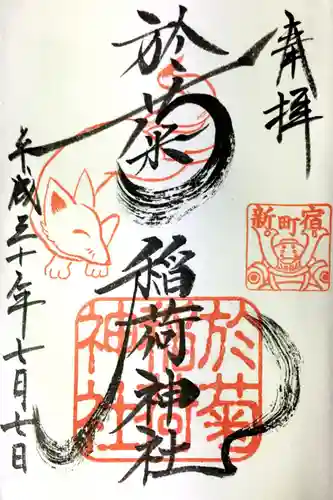 奉拝
於菊
稲荷神社
平成三十年七月七日
新町宿
於菊
稲荷
神社